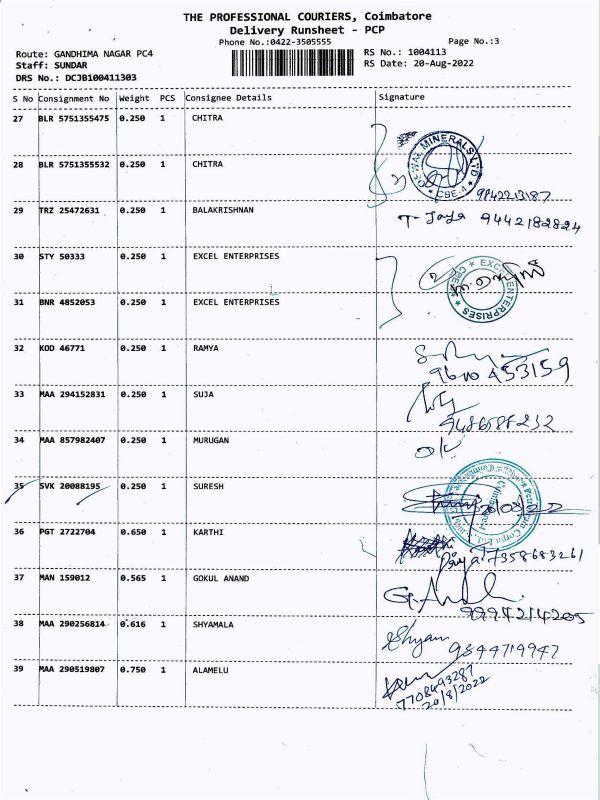 THE PROFESSIONAL COURIERS, Coimbatore
Delivery Runsheet - PCP
Phone No.:0422-3505555 Page No.:3
Route: GANDHIMA NAGAR PC4 RS No.: 1004113
Staff: SUNDAR RS Date: 20-Aug-2022
DRS No.: DCJB100411303
S No Consignment No Weight PCS Consignee Details Signature
27 BLR 5751355475 0.250 1 CHITRA
28 BLR 5751355532 0.250 1 CHITRA
MINERALS
CBE-4
9842213187
29 TRZ 25472631 0.250 1 BALAKRISHNAN
T. Jaya 9442182824
30 STY 50333 0.250 1 EXCEL ENTERPRISES
31 BNR 4852053 0.250 1 EXCEL ENTERPRISES
EXCEL ENTERPRISES
32 KOD 46771 0.250 1 RAMYA
33 MAA 294152831 0.250 1 SUJA
34 MAA 857982407 0.250 1 MURUGAN
35 SVK 20088195 0.250 1 SURESH
36 PGT 2722704 0.650 1 KARTHI
Priya 7358683261
37 MAN 159012 0.565 1 GOKUL ANAND
9994214205
38 MAA 290256814 0.616 1 SHYAMALA
Shyam
9844719947
39 MAA 290519807 0.750 1 ALAMELU
7708493287
20/8/2022